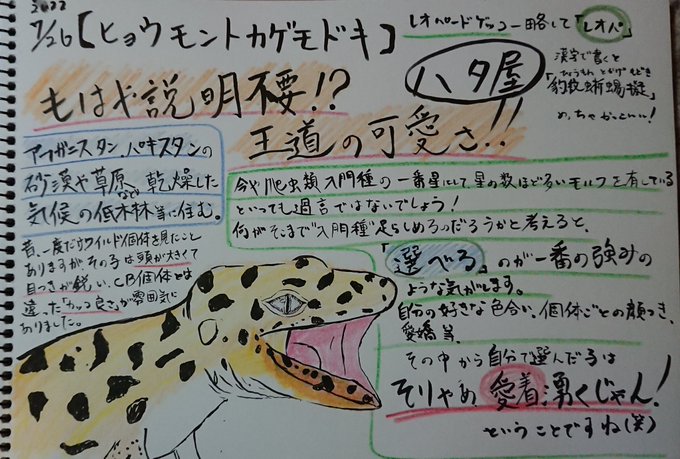 2022
7/26【ヒョウモントカゲモドキ】
レオパードゲッコー略して「レオパ」
ハタ屋
漢字で書くと
ひょうもん とかげ もどき
「豹紋蜥蜴擬」
めっちゃかっこいい!
もはや説明不要!?
王道の可愛さ!!
アフガニスタン、パキスタンの
砂漠や草原など乾燥した
気候の低木林等に住む。
昔、一度だけワイルド個体を見たこと
ありますが、その子は頭が大きくて
目つきが鋭い、CB個体とは
違った「カッコ良さ」が雰囲気に
ありました。
今や爬虫類入門種の一番星にして星の数ほど多いモルフを有している
といっても過言ではないでしょう!
何がそこまで"入門種"足らしめるのだろうかと考えると、
「選べる」のが一番の強みの
ような気がします。
自分の好きな色合い、個体ごとの顔つき、
愛嬌等、
その中から自分で選んだ子は
そりゃめ愛着湧くじゃん!
ということですね(笑)